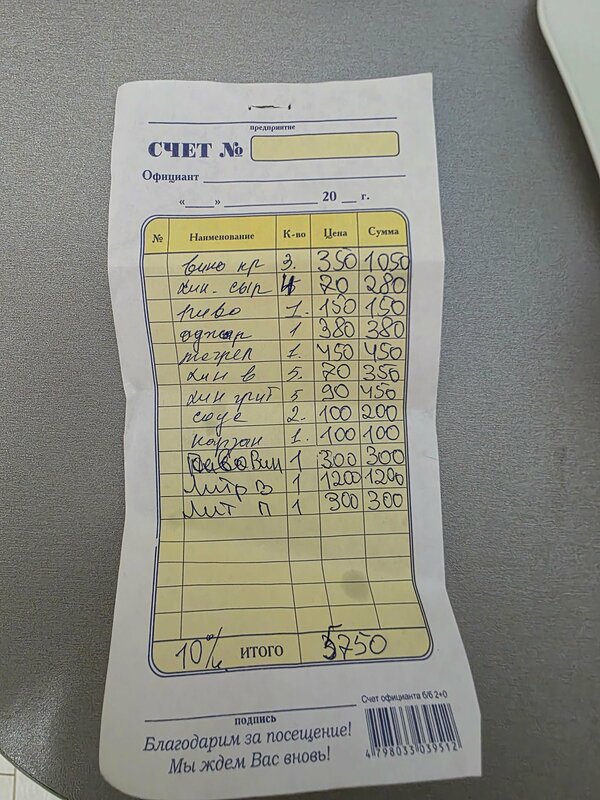 предприятие
СЧЕТ №
Официант
« » 20 г.
№ Наименование К-во Цена Сумма
вино кр 3. 350 1050
хин. сыр 4 70 280
пиво 1. 150 150
аджар 1 380 380
мегрел 1. 450 450
хин в 5. 70 350
хин гриб 5 90 450
соус 2. 100 200
1. 100 100
1 300 300
Литр В 1 1200 1200
Лит П 1 300 300
10% ИТОГО 5750
Счет официанта б/б 2+0
подпись
Благодарим за посещение!
Мы ждем Вас вновь!
4 798033 039512